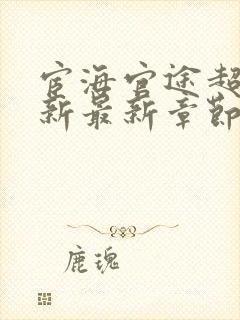 宦海官途超
新最新章节
鹿瑰